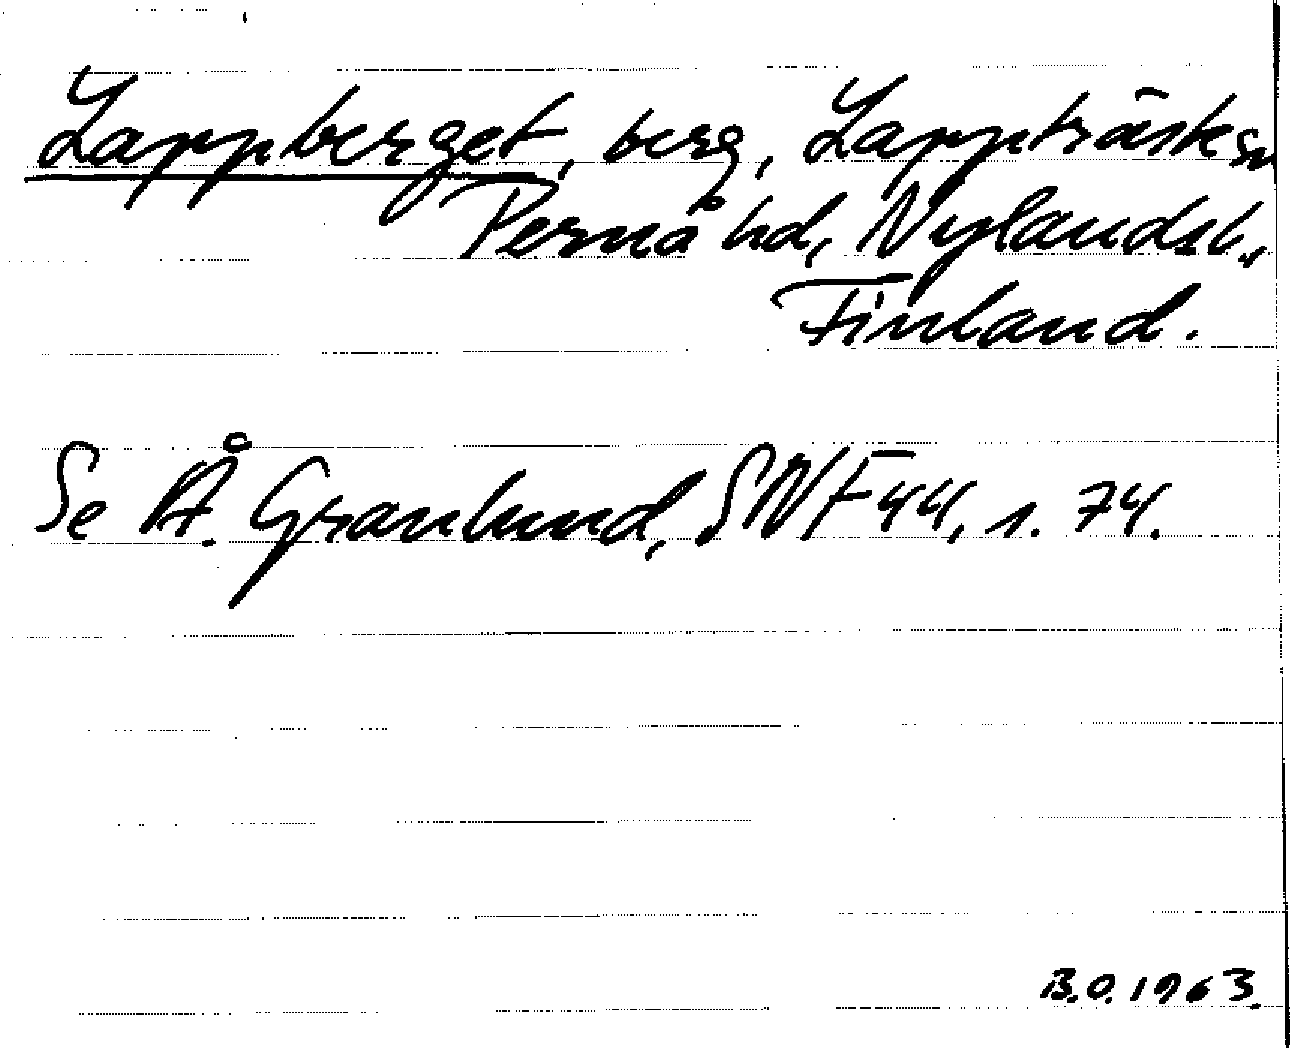 Lappberget, berg, Lappträsk sn
Pernå hd, Nylands l.,
Finland.
Se Å. Granlund, SNF 44, s. 74.
B.O. 1963.